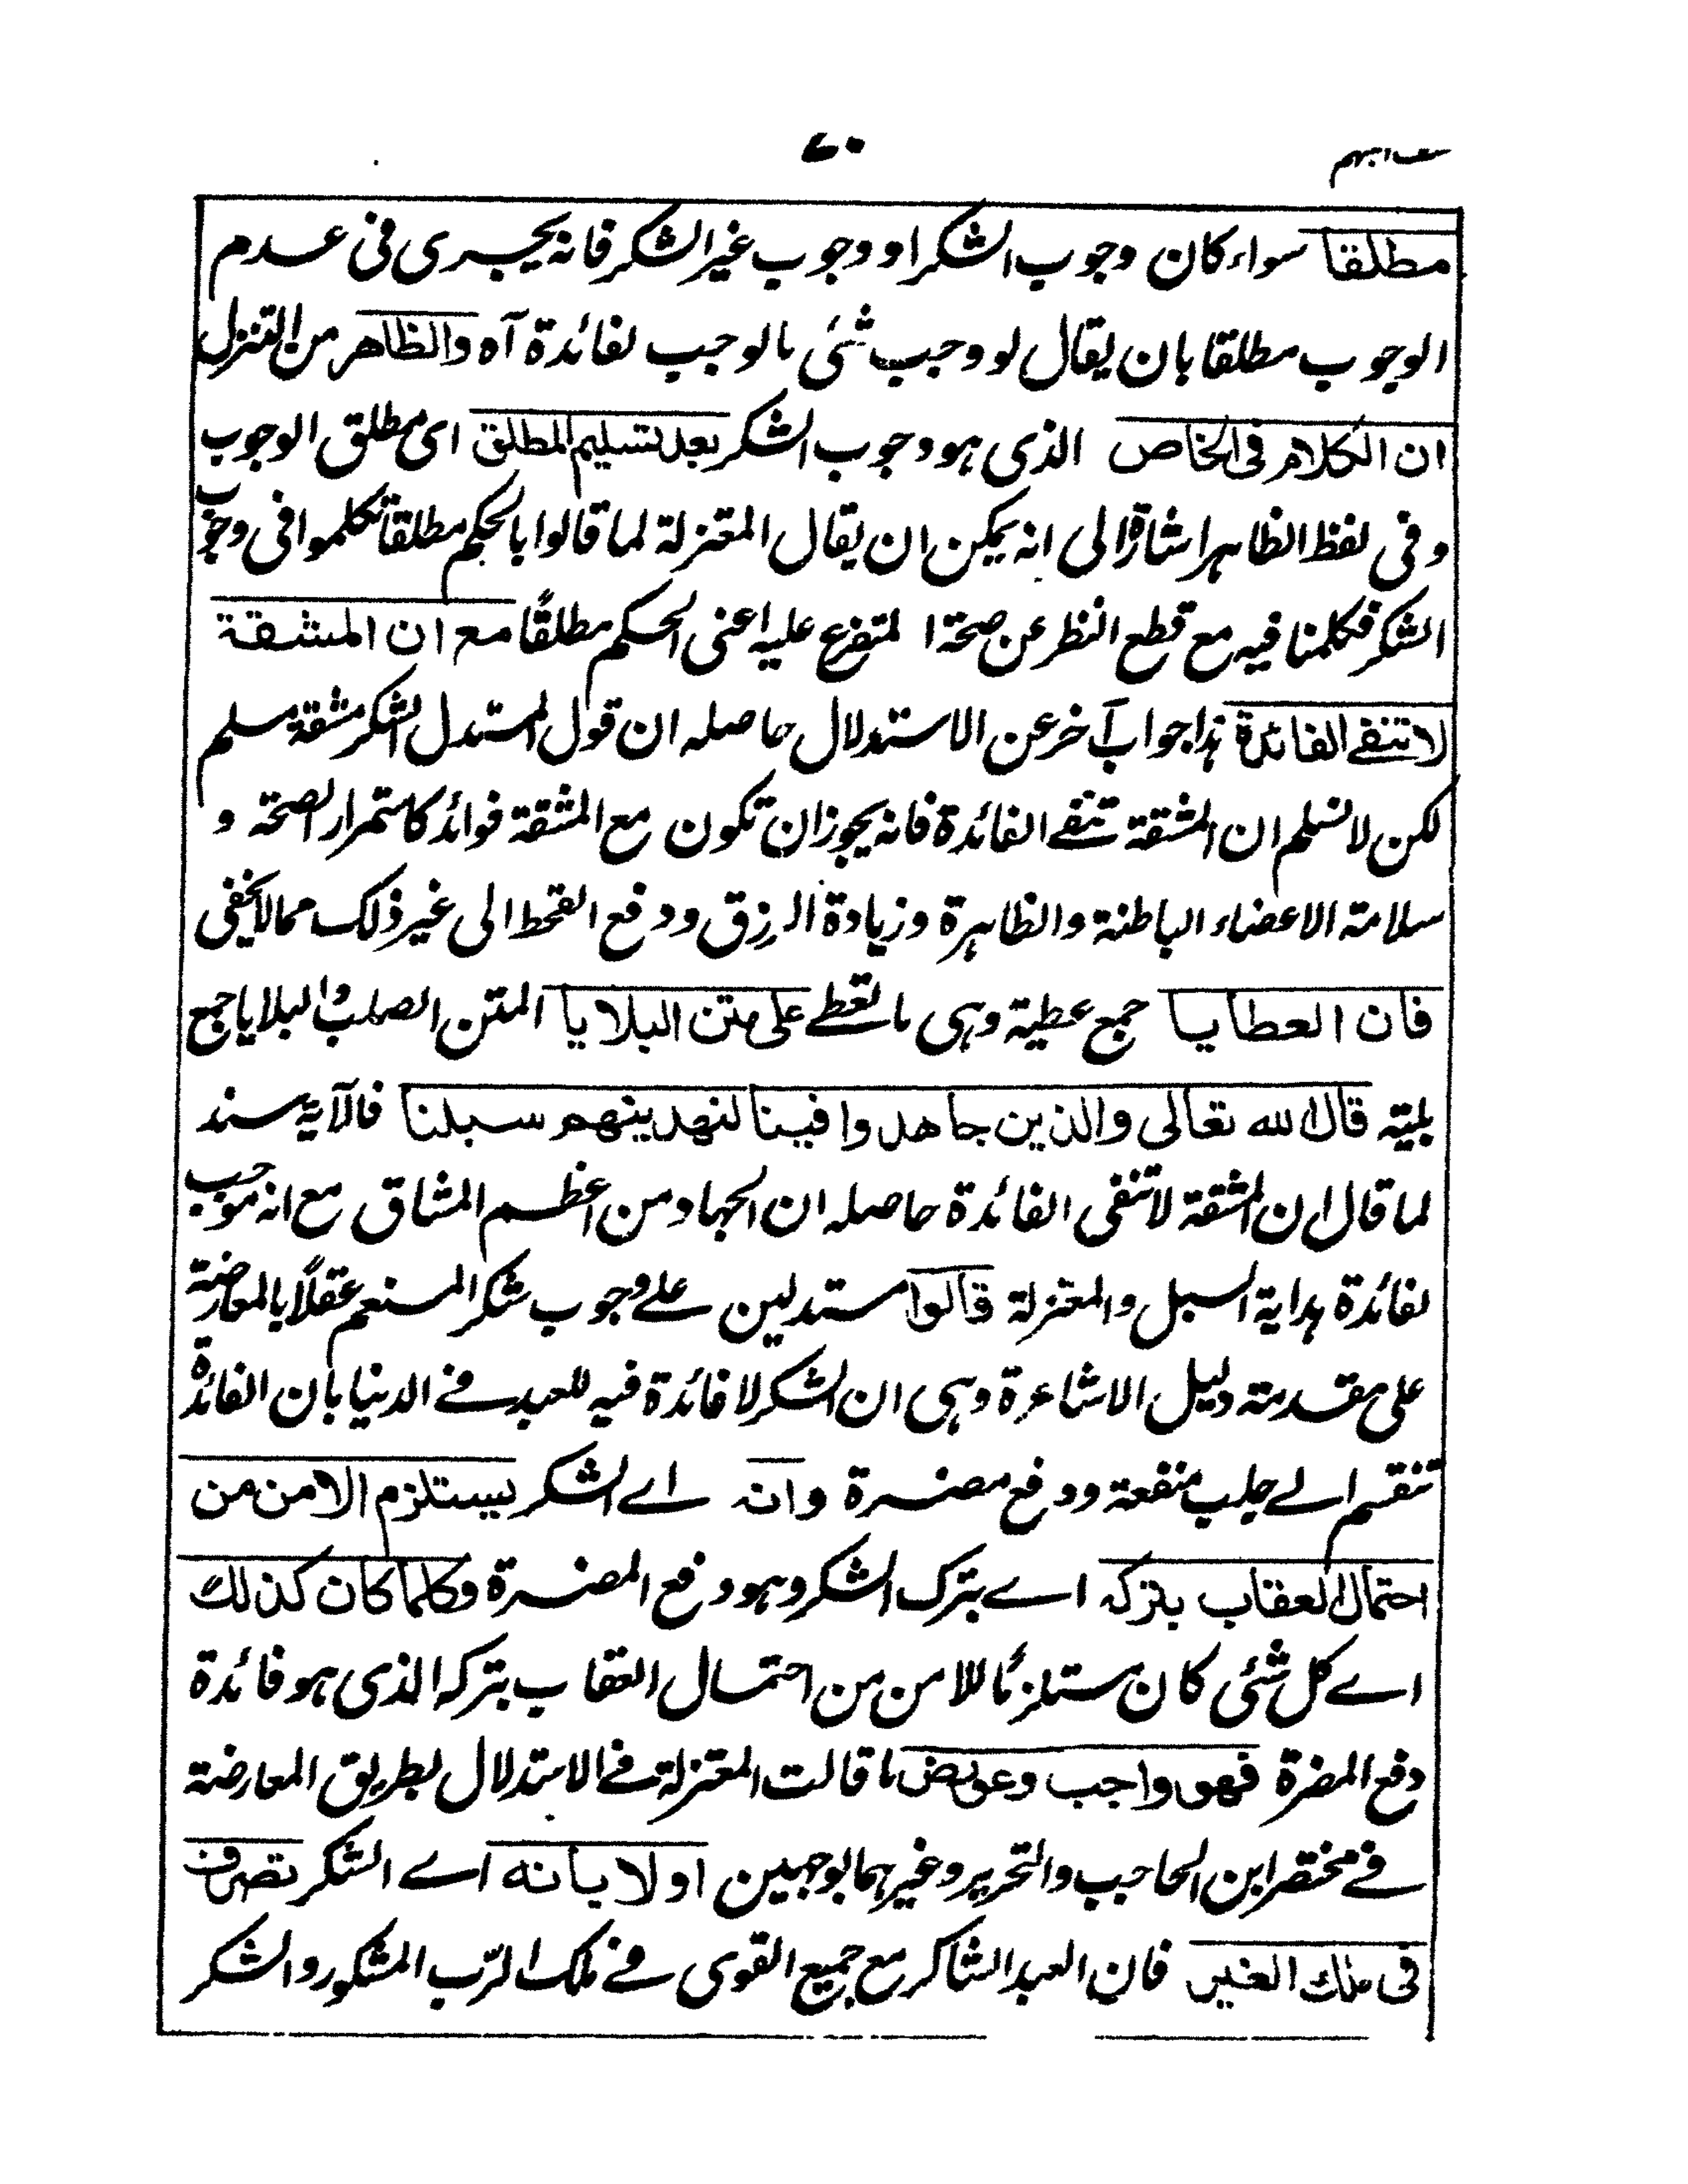 ٧٠
مطلقا سواء كان وجوب الشكر او وجوب غير الشكر فانه يجرى فى عدم
الوجوب مطلقا بان يقال لو وجب شئ ما لوجب لفائدة آه والظاهر من التنزل
ان الكلام فى الخاص الذى هو وجوب الشكر بعد تسليم المطلق اى مطلق الوجوب
وفى لفظ الظاهر اشارة الى انه يمكن ان يقال المعتزلة لما قالوا بالحكم مطلقا تكلموا فى وجوب
الشكر فكلمنا فيه مع قطع النظر عن صحة المتفرع عليه اعنى الحكم مطلقًا مع ان المشقة
لا تنفے الفائدة هذا جواب آخر عن الاستدلال حاصله ان قول المستدل الشكر مشقة مسلم
لكن لا نسلم ان المشقة تنفے الفائدة فانه يجوز ان تكون مع المشقة فوائد كاستمرار الصحة و
سلامة الاعضاء الباطنة والظاهرة وزيادة الرزق ودفع القحط الى غير ذلك مما لا يخفى
فان العطايا جمع عطية وهى ما تعطے على متن البلايا المتن الصلب والبلايا جمع
بلية قال الله تعالى والذين جاهدوا فينا لنهدينهم سبلنا فالآية سند
لما قال ان المشقة لا تنفى الفائدة حاصله ان الجهاد من اعظم المشاق مع انه موجب
لفائدة هداية السبل والمعتزلة قالوا مستدلين علے وجوب شكر المنعم عقلًا بالمعارضة
على مقدمة دليل الاشاعرة وهى ان الشكر لا فائدة فيه للعبد فے الدنيا بان الفائدة
تنقسم الے جلب منفعة ودفع مضرة وانه اے الشكر يستلزم الامن من
احتمال العقاب بتركه اے بترك الشكر وهو دفع المضرة وكلما كان كذلك
اے كل شئى كان مستلزمًا للامن من احتمال العقاب بتركه الذى هو فائدة
دفع المضرة فهو واجب وعورض ما قالت المعتزلة فے الاستدلال بطريق المعارضة
فے مختصر ابن الحاجب والتحرير وغيرهما بوجهين اولا بانه اے الشكر تصرف
فى ملك الغير فان العبد الشاكر مع جميع القوى فے ملك الرّب المشكور والشكر